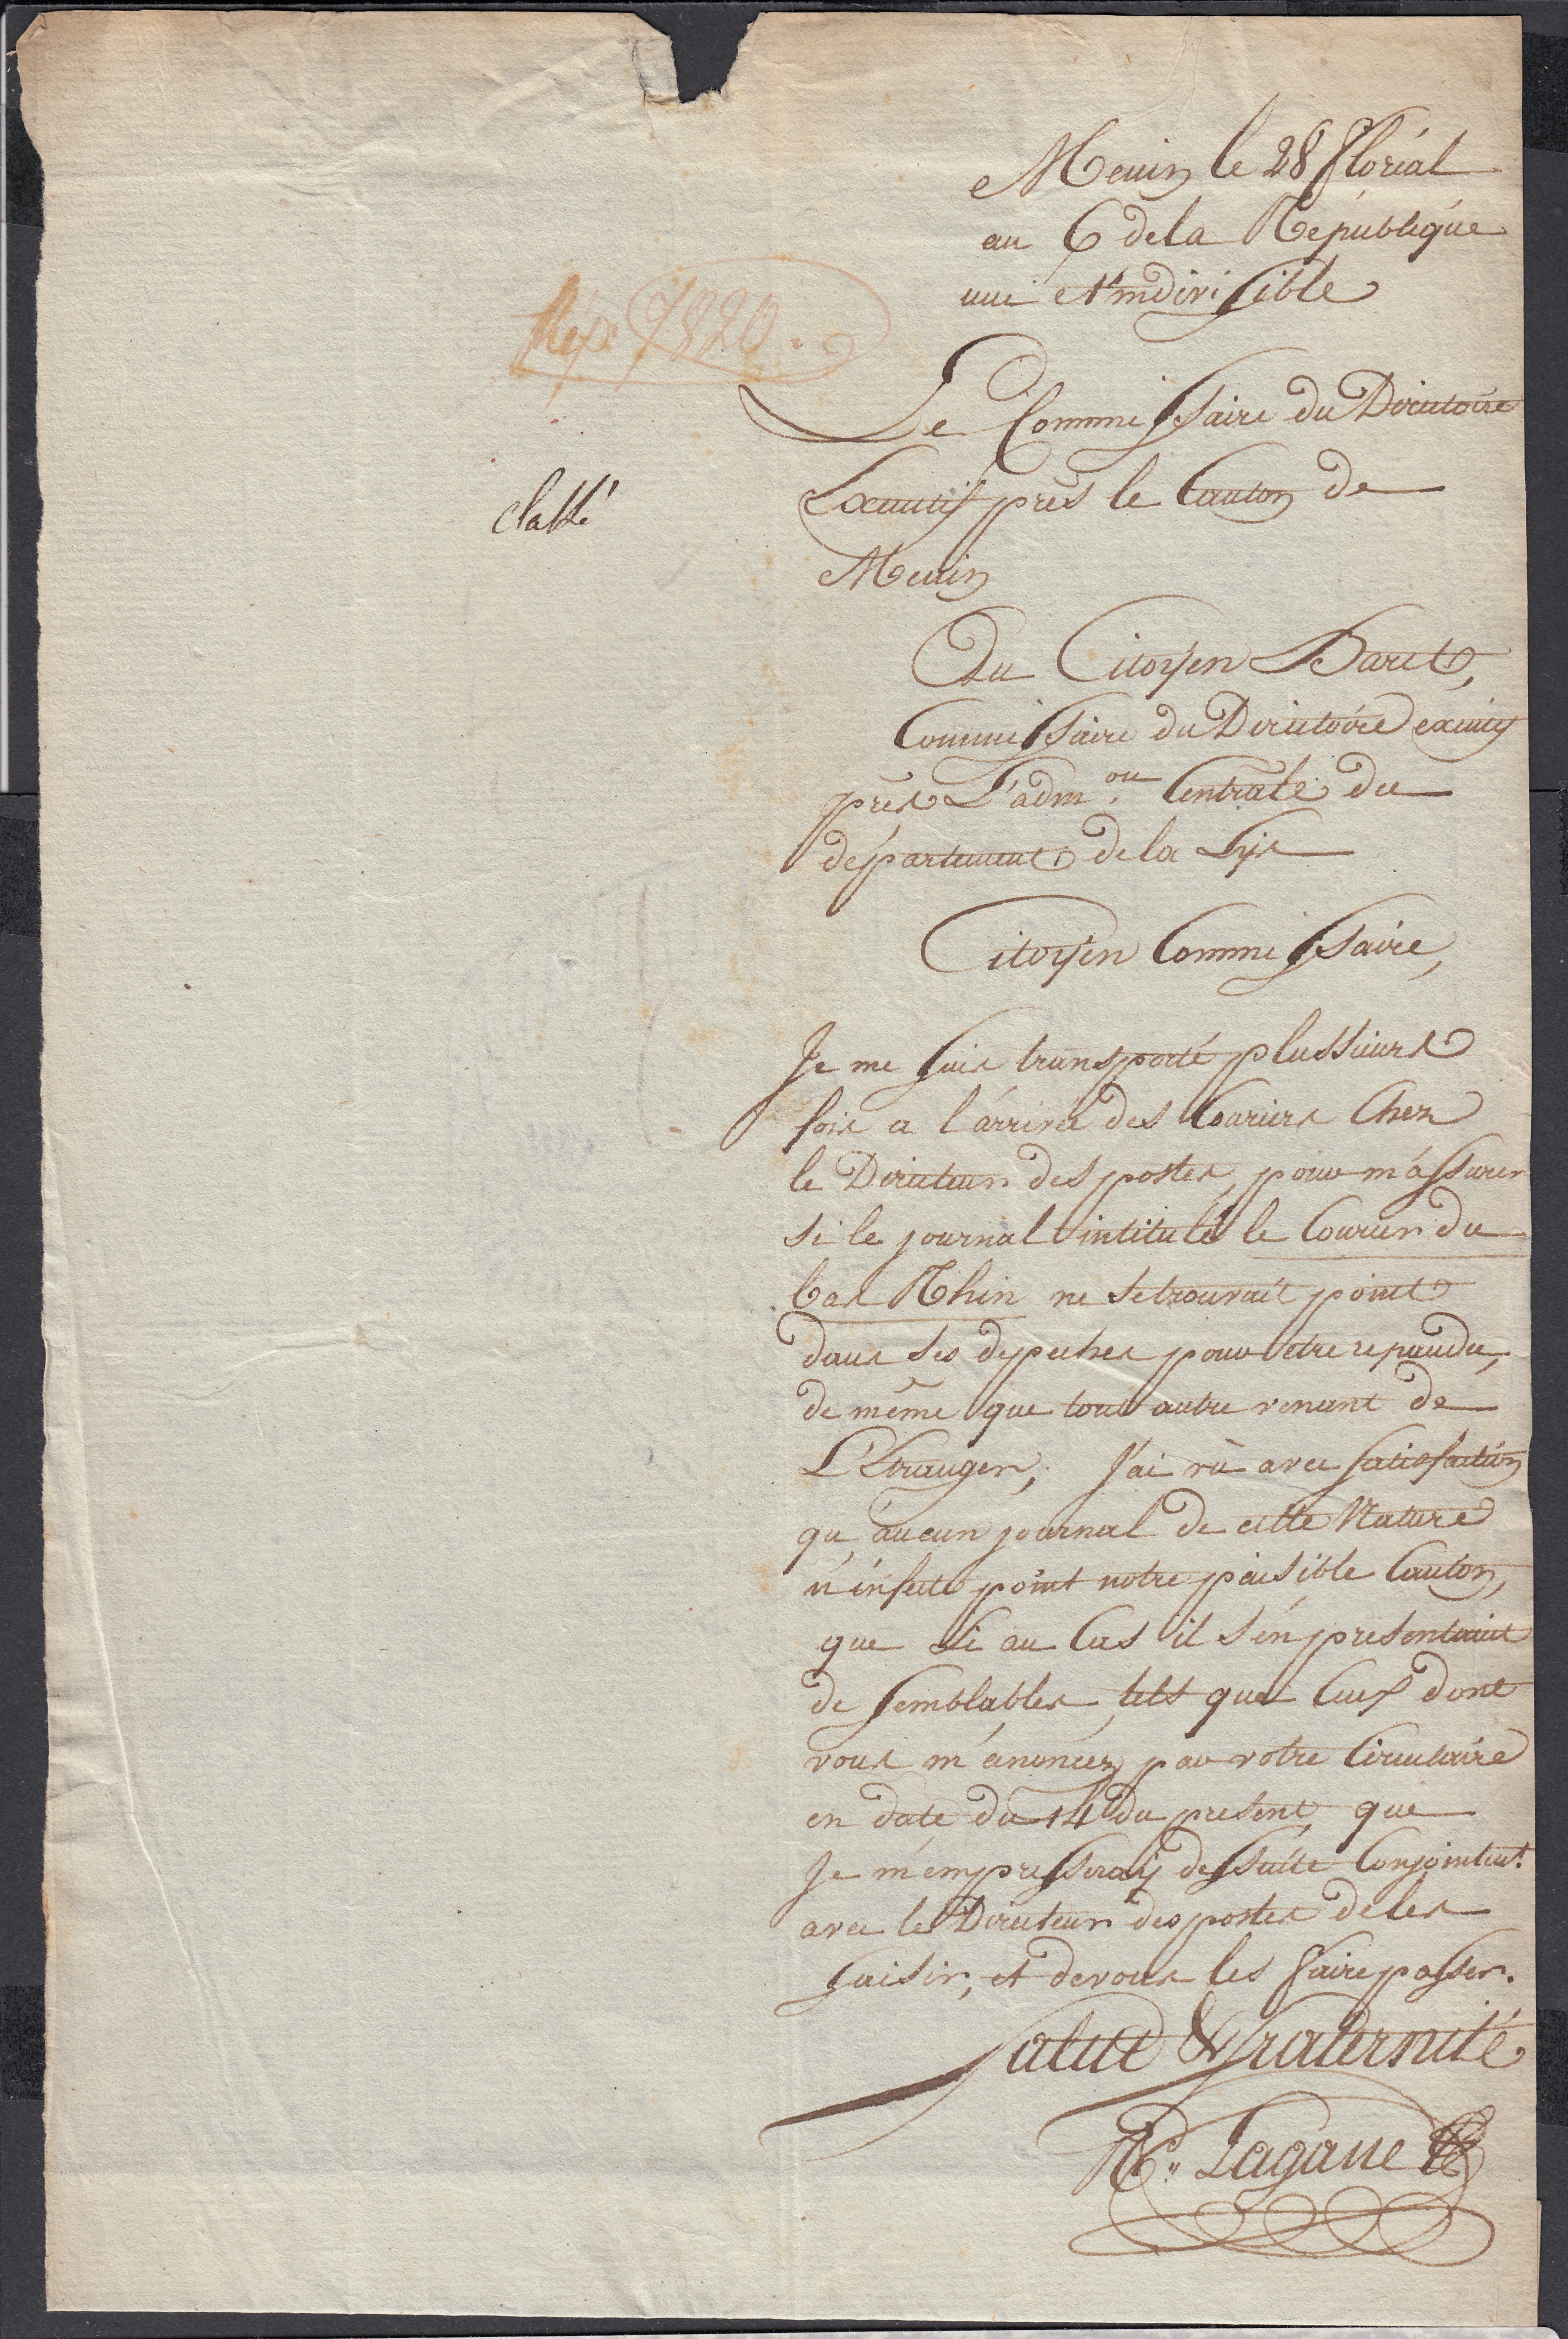 Menin le 28 floréal
an 6 de la République
une et indivisible
Rép. 7820.
Le Commissaire du Directoire
Executif près le Canton de
Menin
classé
Au Citoÿen Baret,
Commissaire du Directoire executif
près L'adm.on Centrale du
département de la Lys
Citoÿen Commissaire,
Je me suis transporté plussieurs
fois a l'arrivée des Couriers Chez
le Directeur des postes, pour m'assurer
si le journal intitulé le Courier du
bas Rhin ne se trouvait point
dans ses depeches pour etre repandu,
de même que tout autre venant de
L'Etranger, J'ai vù avec satisfaction
qu'aucun journal de cette Nature
n'infecte point notre paisible Canton,
que si au Cas il s'en presentaint
de semblables, tels que Ceux dont
vous m'anoncez par votre Circulaire
en date du 14 du present, que
Je m'empresseraÿ de suite Conjointent.
avec le Directeur des postes de les
saisir, et de vous les faire passer.
Salut & fraternité
Lagane